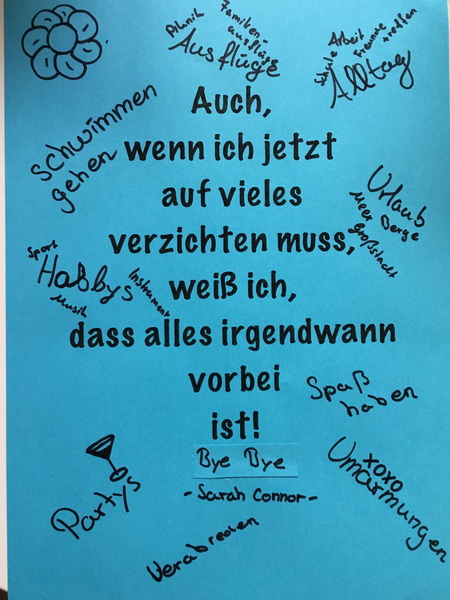 Picknik
Familien-
ausflüge
Ausflüge
Schule
Arbeit
Freunde
treffen
Alltag
Auch,
schwimmen
gehen
wenn ich jetzt
auf vieles
Urlaub
Meer Berge
Großstadt
verzichten muss,
Sport
Hobbys
Musik
Instrument
weiß ich,
dass alles irgendwann
vorbei
ist!
Spaß
haben
Bye Bye
- Sarah Connor -
Partys
xoxo
Umarmungen
Verabreden